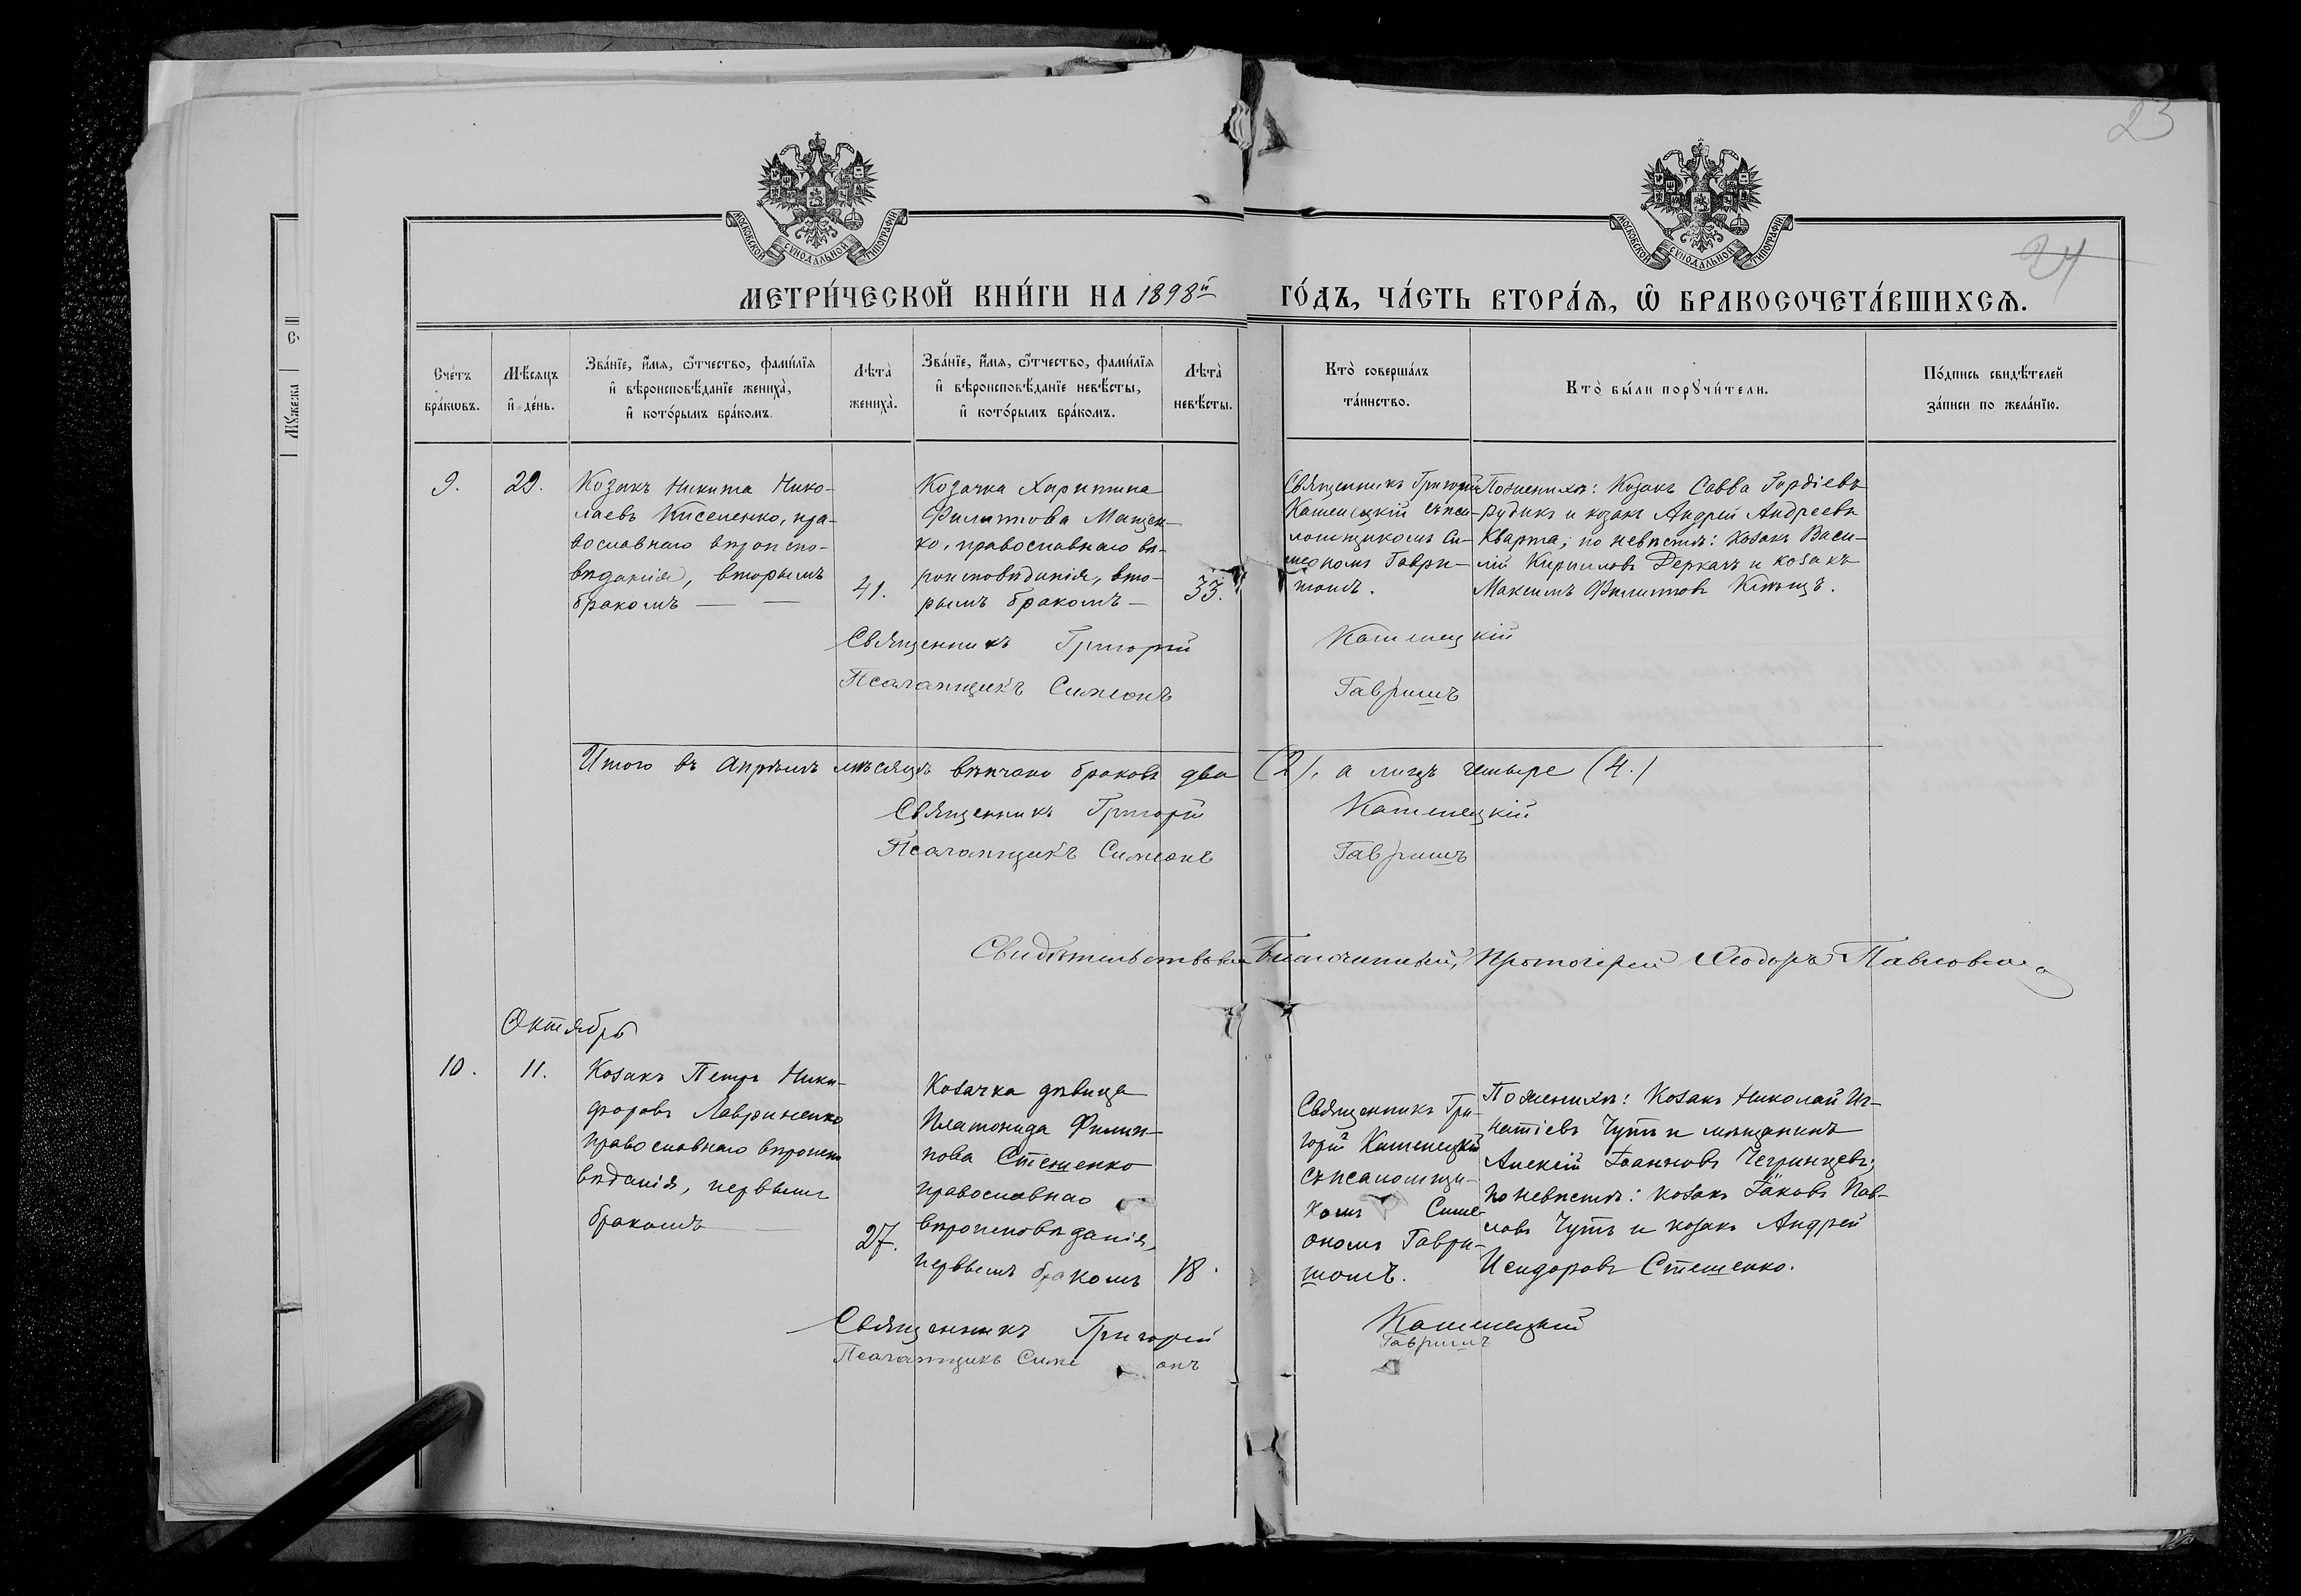 23
24
МОСКОВСКОЙ СѴНОДАЛЬНОЙ ТИПОГРАФІИ
МОСКОВСКОЙ СѴНОДАЛЬНОЙ ТИПОГРАФІИ
МЕТРИ́ЧЕСКОЙ КНИ́ГИ НА 1898й ГО́ДЪ, ЧА́СТЬ ВТОРА́Я, Ѿ БРАКОСОЧЕТА́ВШИХСѦ.
Сче́тъ
бра́кѡвъ.
Мѣ́сѧцъ
и҆ де́нь.
Зва́нїе, и҆́мѧ, ѻ҆́тчество, фами́лїѧ
и҆ вѣроисповѣ́данїе жениха̀,
и҆ кото́рымъ бра́комъ.
Лѣ́та̀
жениха̀.
Зва́нїе, и҆́мѧ, ѻ҆́тчество, фами́лїѧ
и҆ вѣроисповѣ́данїе невѣ́сты,
и҆ кото́рымъ бра́комъ.
Лѣ́та̀
невѣ́сты.
Кто̀ соверша́лъ
та́инство.
Кто̀ бы́ли порꙋчи́тели.
По́дпись свидѣ́телей
за́писи по жела́нїю.
Мꙋжска
9.
29.
Козакъ Никита Нико-
лаевъ Киселенко, пра-
вославнаго вѣроиспо-
вѣданія, вторымъ
бракомъ
41.
Козачка Харитина
Филиппова Мащен-
ко, православнаго вѣ-
роисповѣданія, вто-
рымъ бракомъ
33.
Священникъ Григорій
Каменецкій съ псал-
ломщикомъ Си-
меономъ Гаври-
шомъ.
По женихѣ: Козакъ Савва Гордіевъ
Рудикъ и козакъ Андрей Андреевъ
Кварта; по невѣстѣ: Козакъ Васи-
лій Кирилловъ Деркачъ и козакъ
Максимъ Филипповъ
Священникъ Григорій Каменецкій
Псаломщикъ Симеонъ Гавришъ
Итого въ Апрѣлѣ мѣсяцѣ вѣнчано браковъ два (2), а лицъ четыре (4.)
Священникъ Григорій Каменецкій
Псаломщикъ Симеонъ Гавришъ
Свидѣтельствовалъ Благочинный, Протоіерей Ѳеодоръ
Октябрь
10.
11.
Козакъ Петръ Ники-
форовъ Лавриненко
православнаго вѣроиспо
вѣданія, первымъ
бракомъ
27.
Козачка дѣвица
Платонида Филип-
пова Стешенко
православнаго
вѣроисповѣданія,
первымъ бракомъ
18.
Священникъ Гри-
горій Каменецкій
съ псаломщи-
комъ Симе-
ономъ Гаври-
шомъ.
По женихѣ: Козакъ Николай Иг-
натіевъ Чутъ и мѣщанинъ
Алексій Іоанновъ Чегринцевъ;
по невѣстѣ: козакъ Іаковъ Пав-
ловъ Чутъ и козакъ Андрей
Исидоровъ Стешенко.
Священникъ Григорій Каменецкій
Псаломщикъ Симеонъ Гавришъ